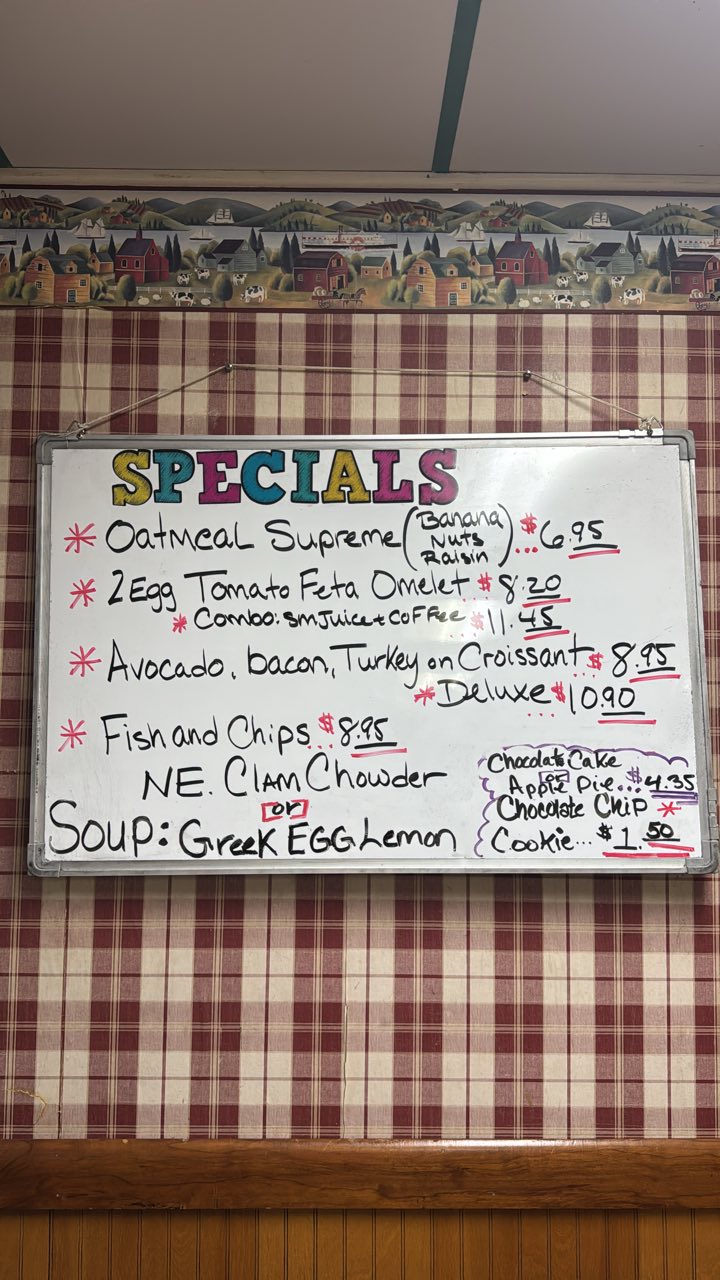 SPECIALS
* Oatmeal Supreme (Banana Nuts Raisin) ... $6.95
* 2 Egg Tomato Feta Omelet .. $8.20
* Combo: sm Juice + Coffee ... $11.45
* Avocado, bacon, Turkey on Croissant ... $8.95
* Deluxe ... $10.90
* Fish and Chips ... $8.95
NE. Clam Chowder
or
Soup: Greek EGG Lemon
Chocolate Cake
or
Apple Pie... $4.35
Chocolate Chip *
Cookie... $1.50